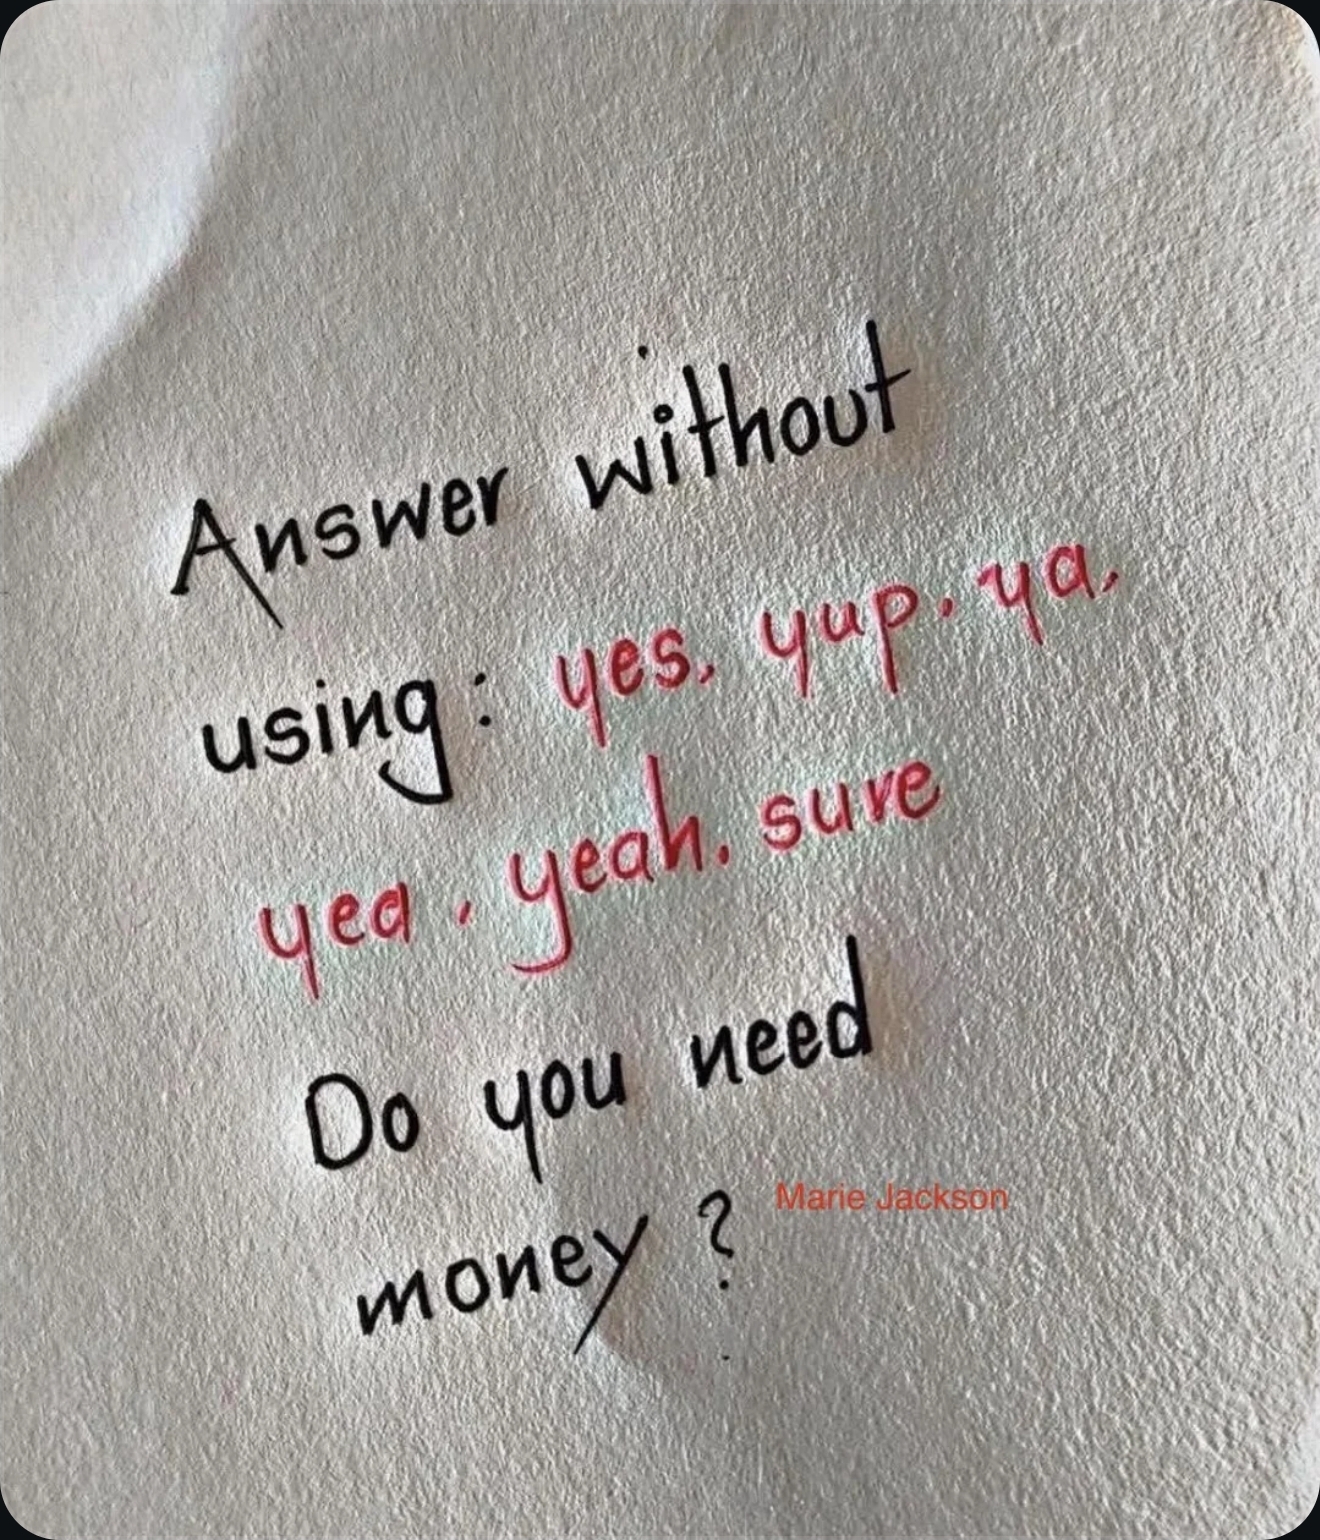 Answer without
using: yes, yup. ya,
yea, yeah. sure
Do you need
money?
Marie Jackson